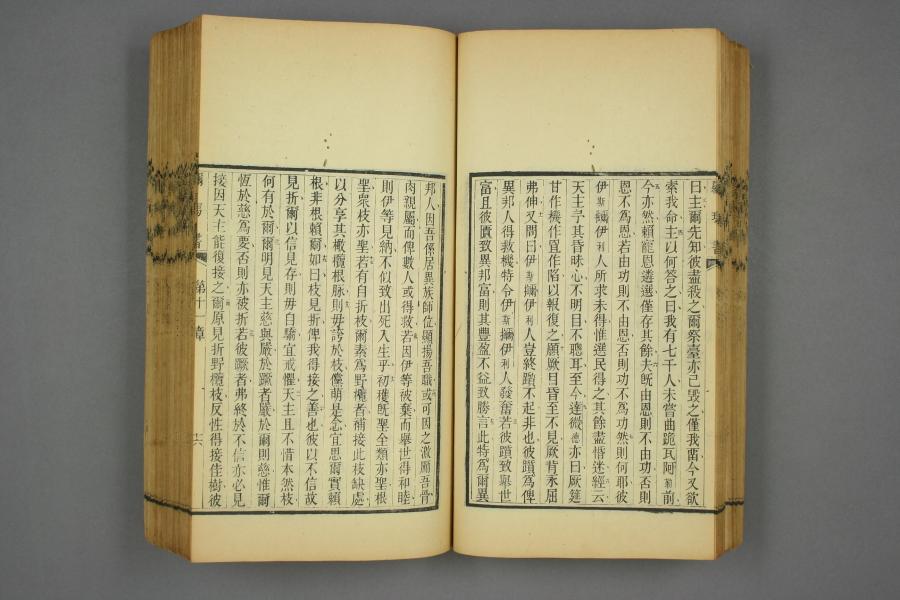 曰主爾先知彼盡殺之爾祭臺亦已毀之僅我留今又欲
索我命主以何答之曰我有七千人未嘗曲跪瓦阿勒前
今亦然賴寵恩遴選僅存其餘夫旣由恩則不由功否則
恩不爲恩若由功則不由恩否則功不爲功然則何耶彼
伊斯攧伊利人所求未得惟選民得之其餘盡惛迷經云
天主予其昏昧心不明目不聰耳至今達微德亦曰厥筵
甘作機作罝作陷以報復之願厥目昏至不見厥背永屈
弗伸又問曰伊斯攧伊利人豈終躓不起非也彼躓爲俾
異邦人得救機特令伊斯攧伊利人發奮若彼躓致舉世
富且彼匱致異邦富則其豐盈不益致勝言此特爲爾異
邦人因吾係居異族師位顯揚吾職或可因之激厲吾骨
肉親屬而俾數人或得救若因伊等被棄而舉世得和睦
則伊等見納不似致出死入生乎初穫旣聖全類亦聖根
聖衆枝亦聖若有自折枝爾素爲野欖者補接此枝缺處
以分享其橄欖根脉則毋誇於枝儻萌是念宜思爾實賴
根非根賴爾如曰枝見折俾我得接之善也彼以不信故
見折爾以信見存則毋自驕宜戒懼天主且不惜本然枝
何有於爾爾明見天主慈與嚴於蹶者嚴於爾則慈惟爾
恆於慈爲要否則亦被折若彼蹶者弗終於不信亦必見
接因天主能復接之爾原見折野欖枝反性得接佳樹彼
第十一章